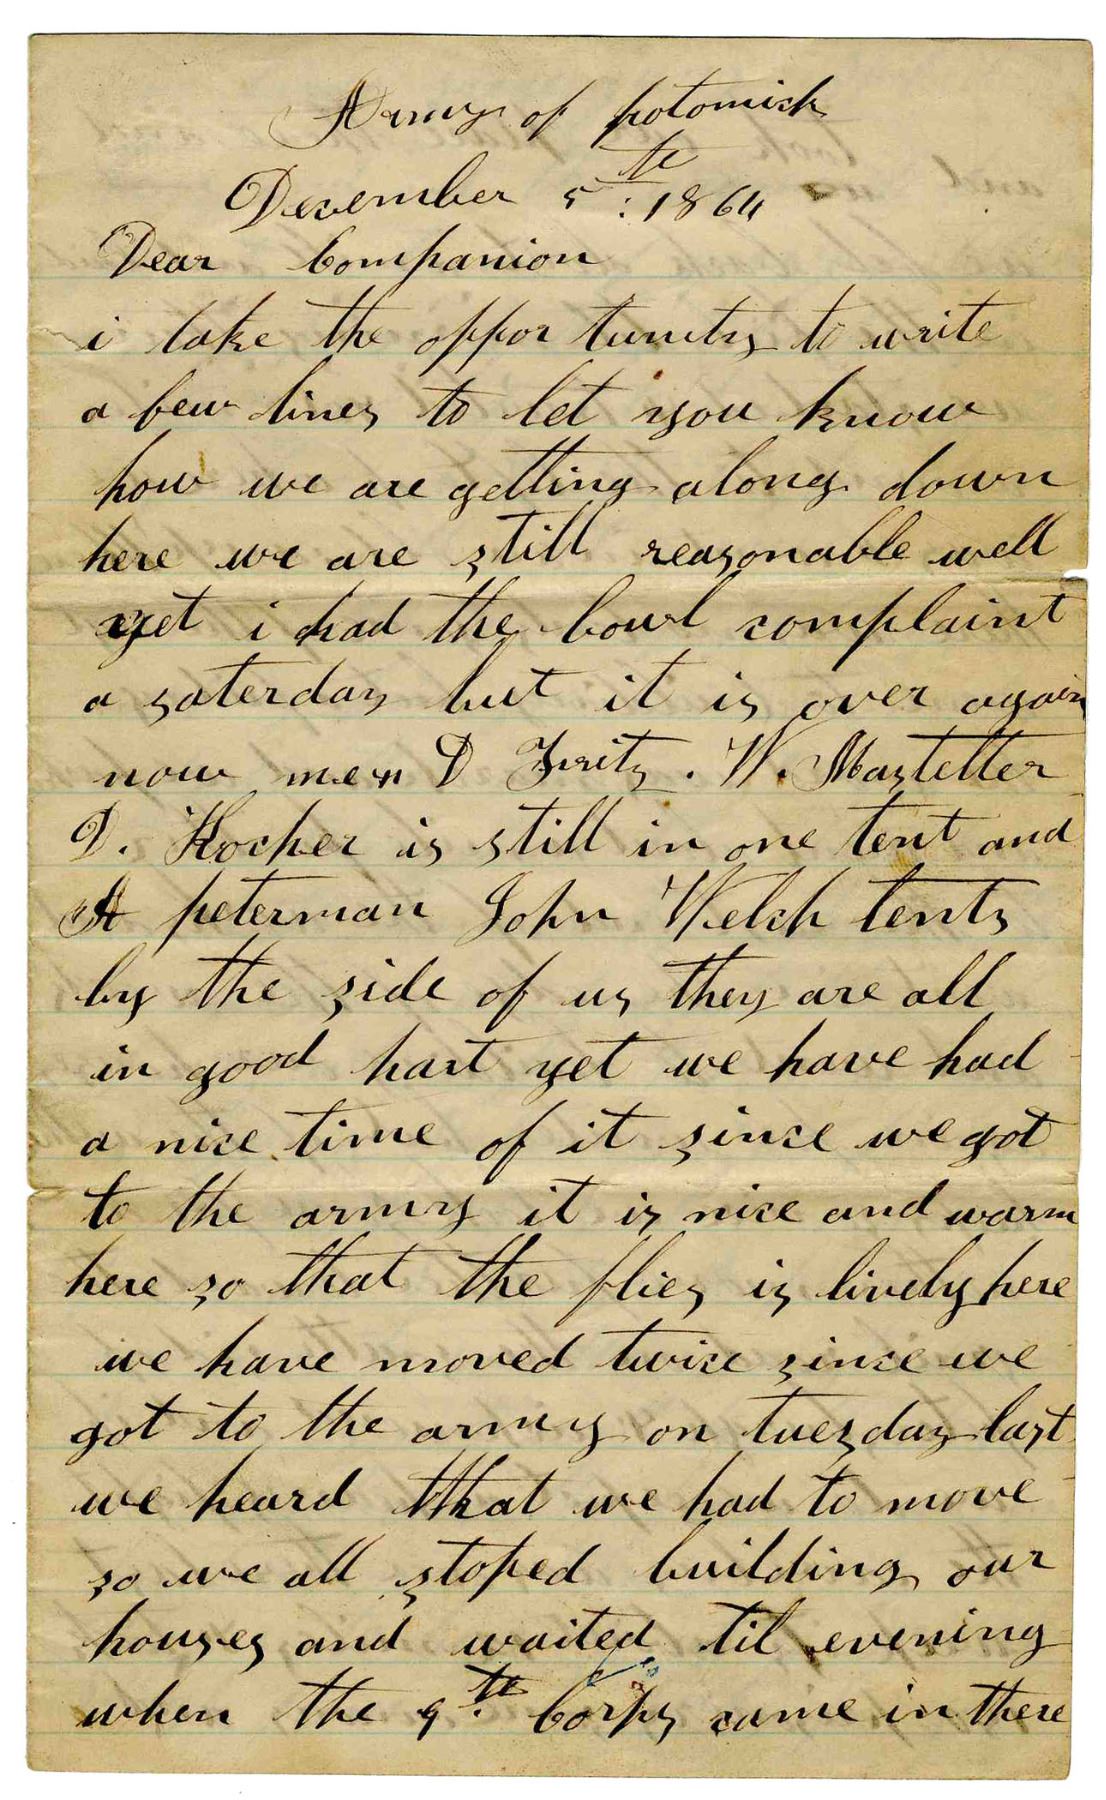 Army of potomick
December 5th : 1864
Dear Companion
i take the oppor tunity to write
a few lines to let you know
how we are getting along down
here we are still reasonable well
yet i had the bowl complaint
a saterday but it is over again
now me D Fritz . W. Mastetter
D. Hocher is still in one tent and
A peterman John Welch tents
by the side of us they are all
in good hart yet we have had
a nice time of it since we got
to the army it is nice and warm
here so that the flies is lively here
we have moved twice since we
got to the army on tuesday last
we heard that we had to move
so we all stoped building our
houses and waited til evening
when the 9th. Corps came in there